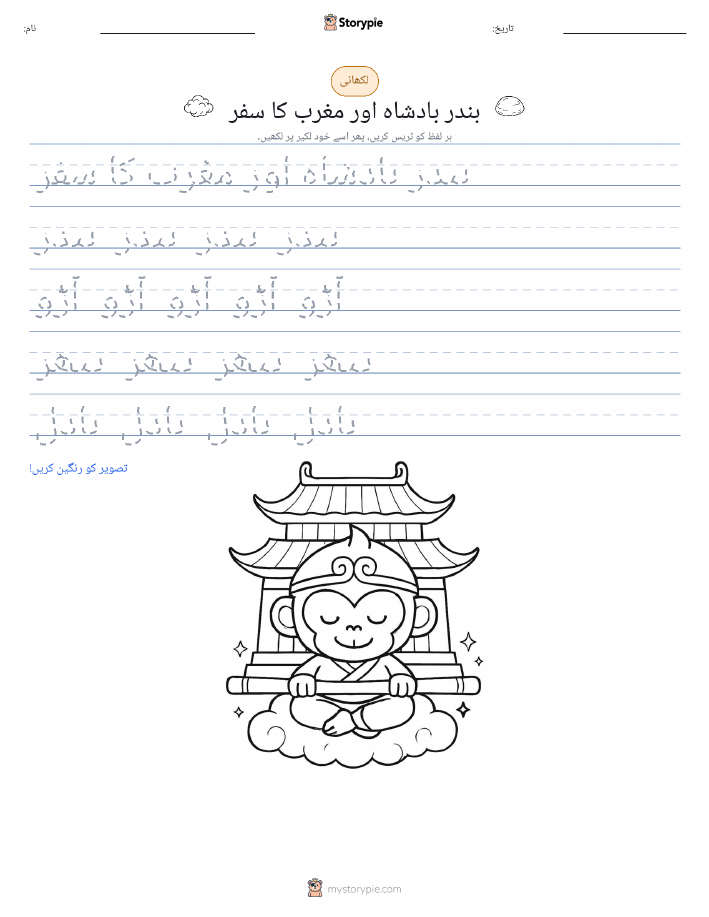 نام:
Storypie
تاریخ:
لکھائی
بندر بادشاہ اور مغرب کا سفر
ہر لفظ کو ٹریس کریں، پھر اسے خود لکیر پر لکھیں۔
بندر بادشاہ اور مغرب کا سفر
بندر بندر بندر بندر
آڑو آڑو آڑو آڑو آڑو
پتھر پتھر پتھر پتھر
بادل بادل بادل بادل
تصویر کو رنگین کریں!
mystorypie.com